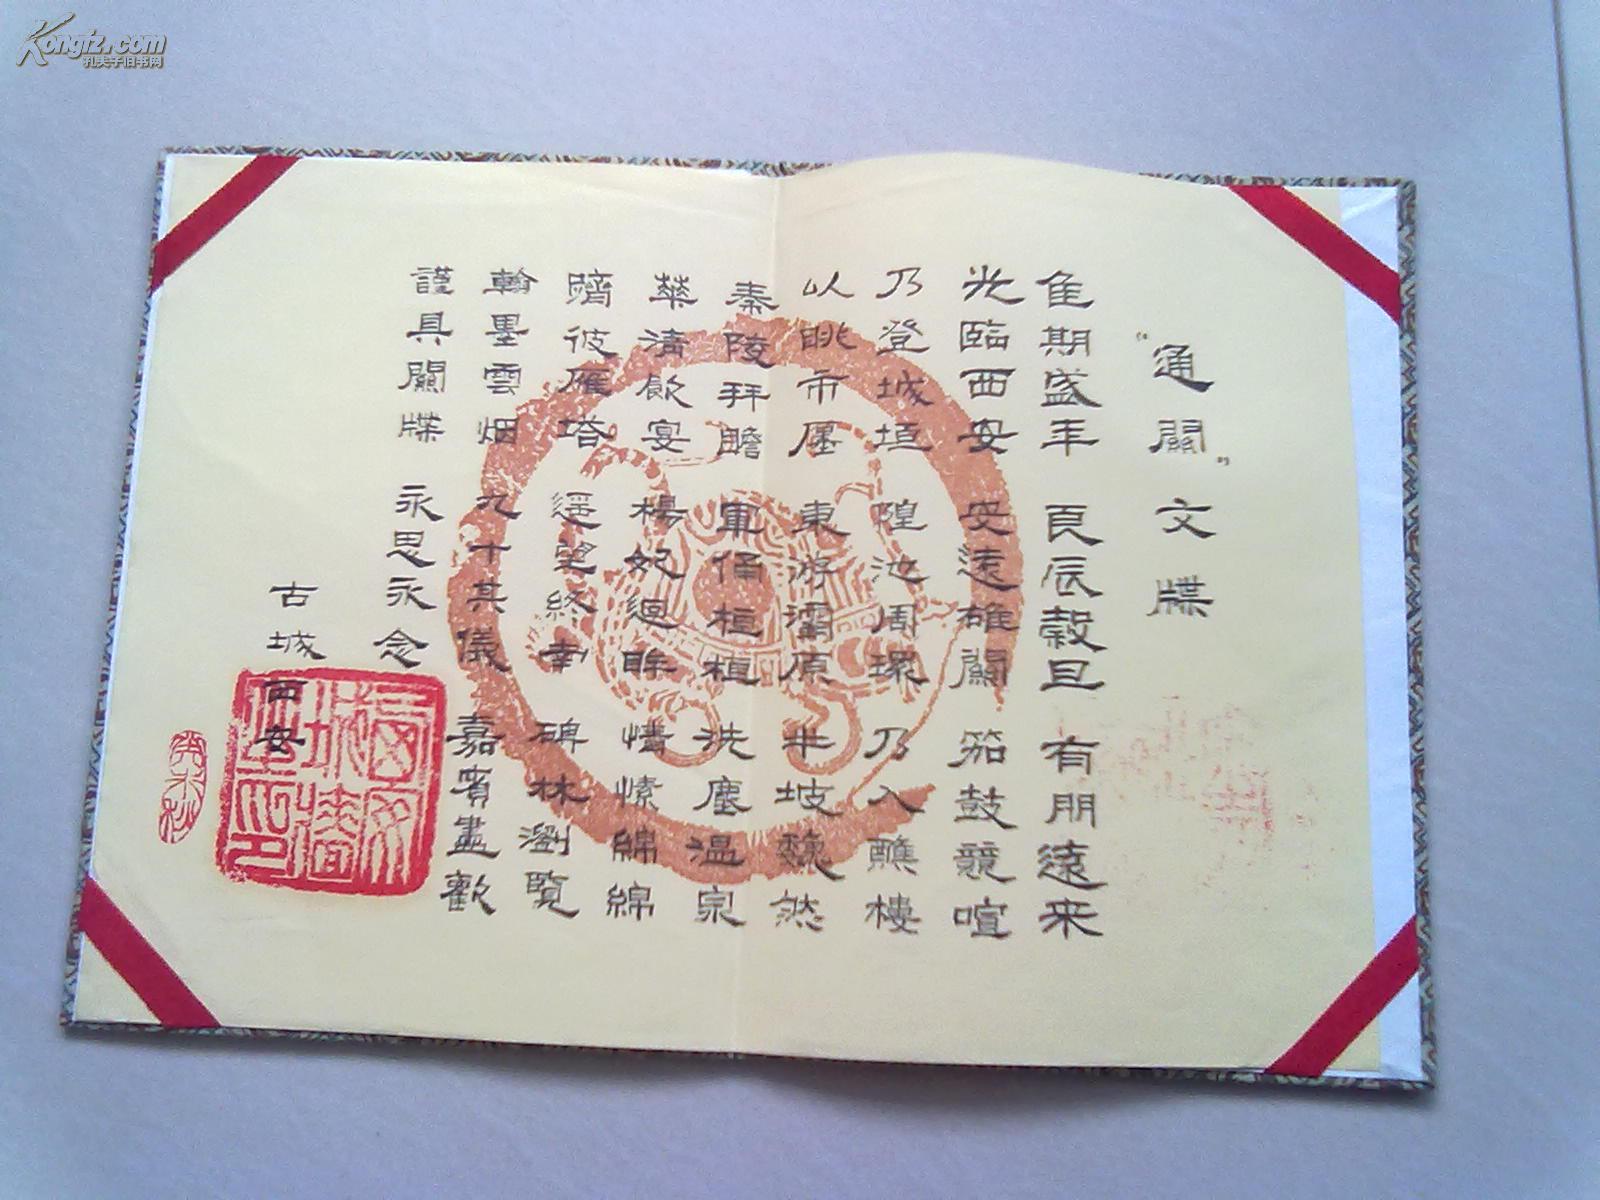 Kongfz.com
孔夫子旧书网
“通關”文牒
隹期盛年 良辰穀旦 有朋遠来
光臨西安 安遠雄關 笳鼓競喧
乃登城垣 隍池周環 乃入醮樓
以眺市廛 東游灞原 半坡巍然
秦陵拜瞻 軍俑桓桓 洗塵温泉
華清飲宴 楊妃迴眸 情愫綿綿
躋彼雁塔 遥望終南 碑林瀏覽
翰墨雲烟 九十其儀 嘉賓盡歡
謹具關牒 永思永念
古城西安
西安城墻之印